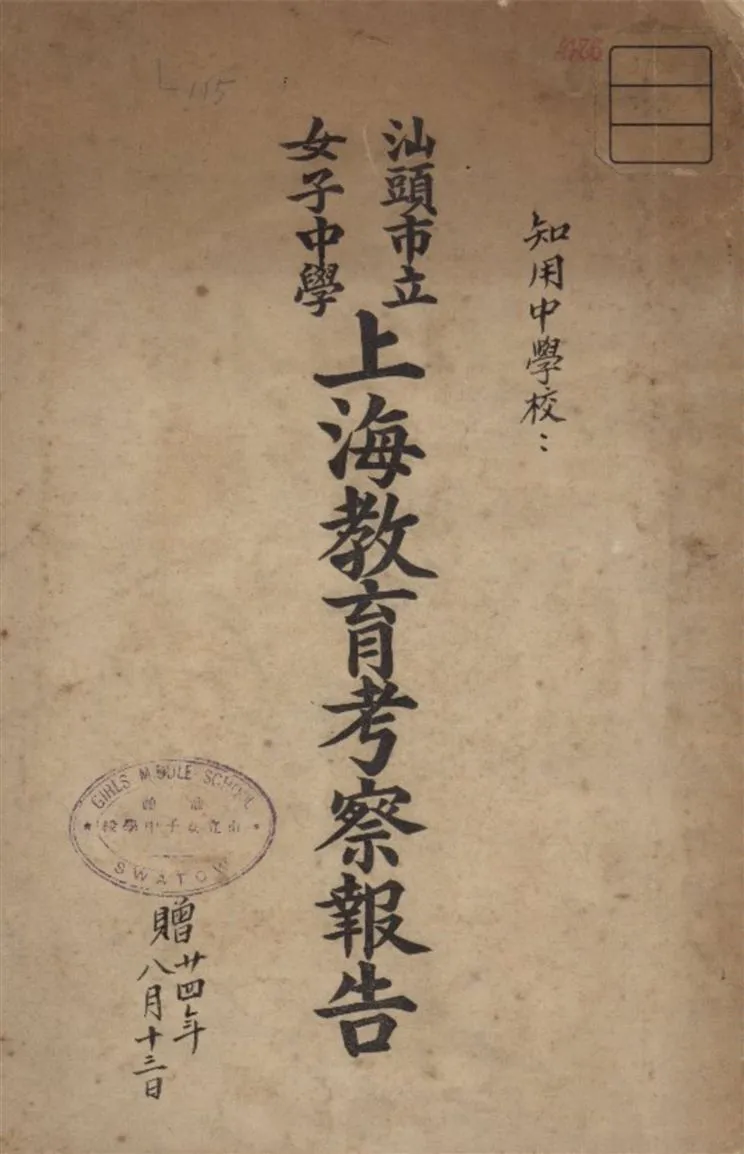 知用中學校：
汕頭市立
女子中學
上海教育考察報告
GIRLS MIDDLE SCHOOL
汕頭
市立女子中學校
SWATOW
贈
廿四年
八月十三日
L115